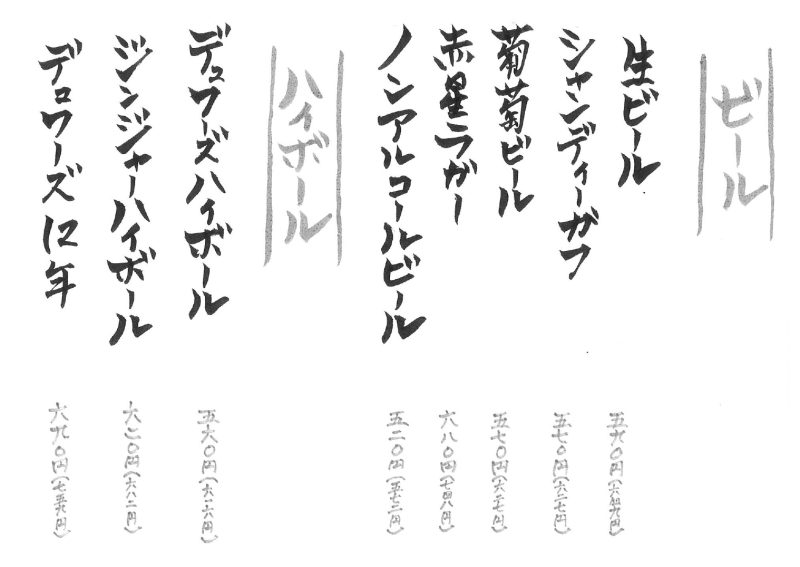 ビール
生ビール 五九〇円(六四九円)
シャンディーガフ 五七〇円(六二七円)
葡萄ビール 五七〇円(六二七円)
赤星ラガー 六八〇円(七四八円)
ノンアルコールビール 五二〇円(五七二円)
ハイボール
デュワーズハイボール 五六〇円(六一六円)
ジンジャーハイボール 六二〇円(六八二円)
デュワーズ12年 六九〇円(七五九円)